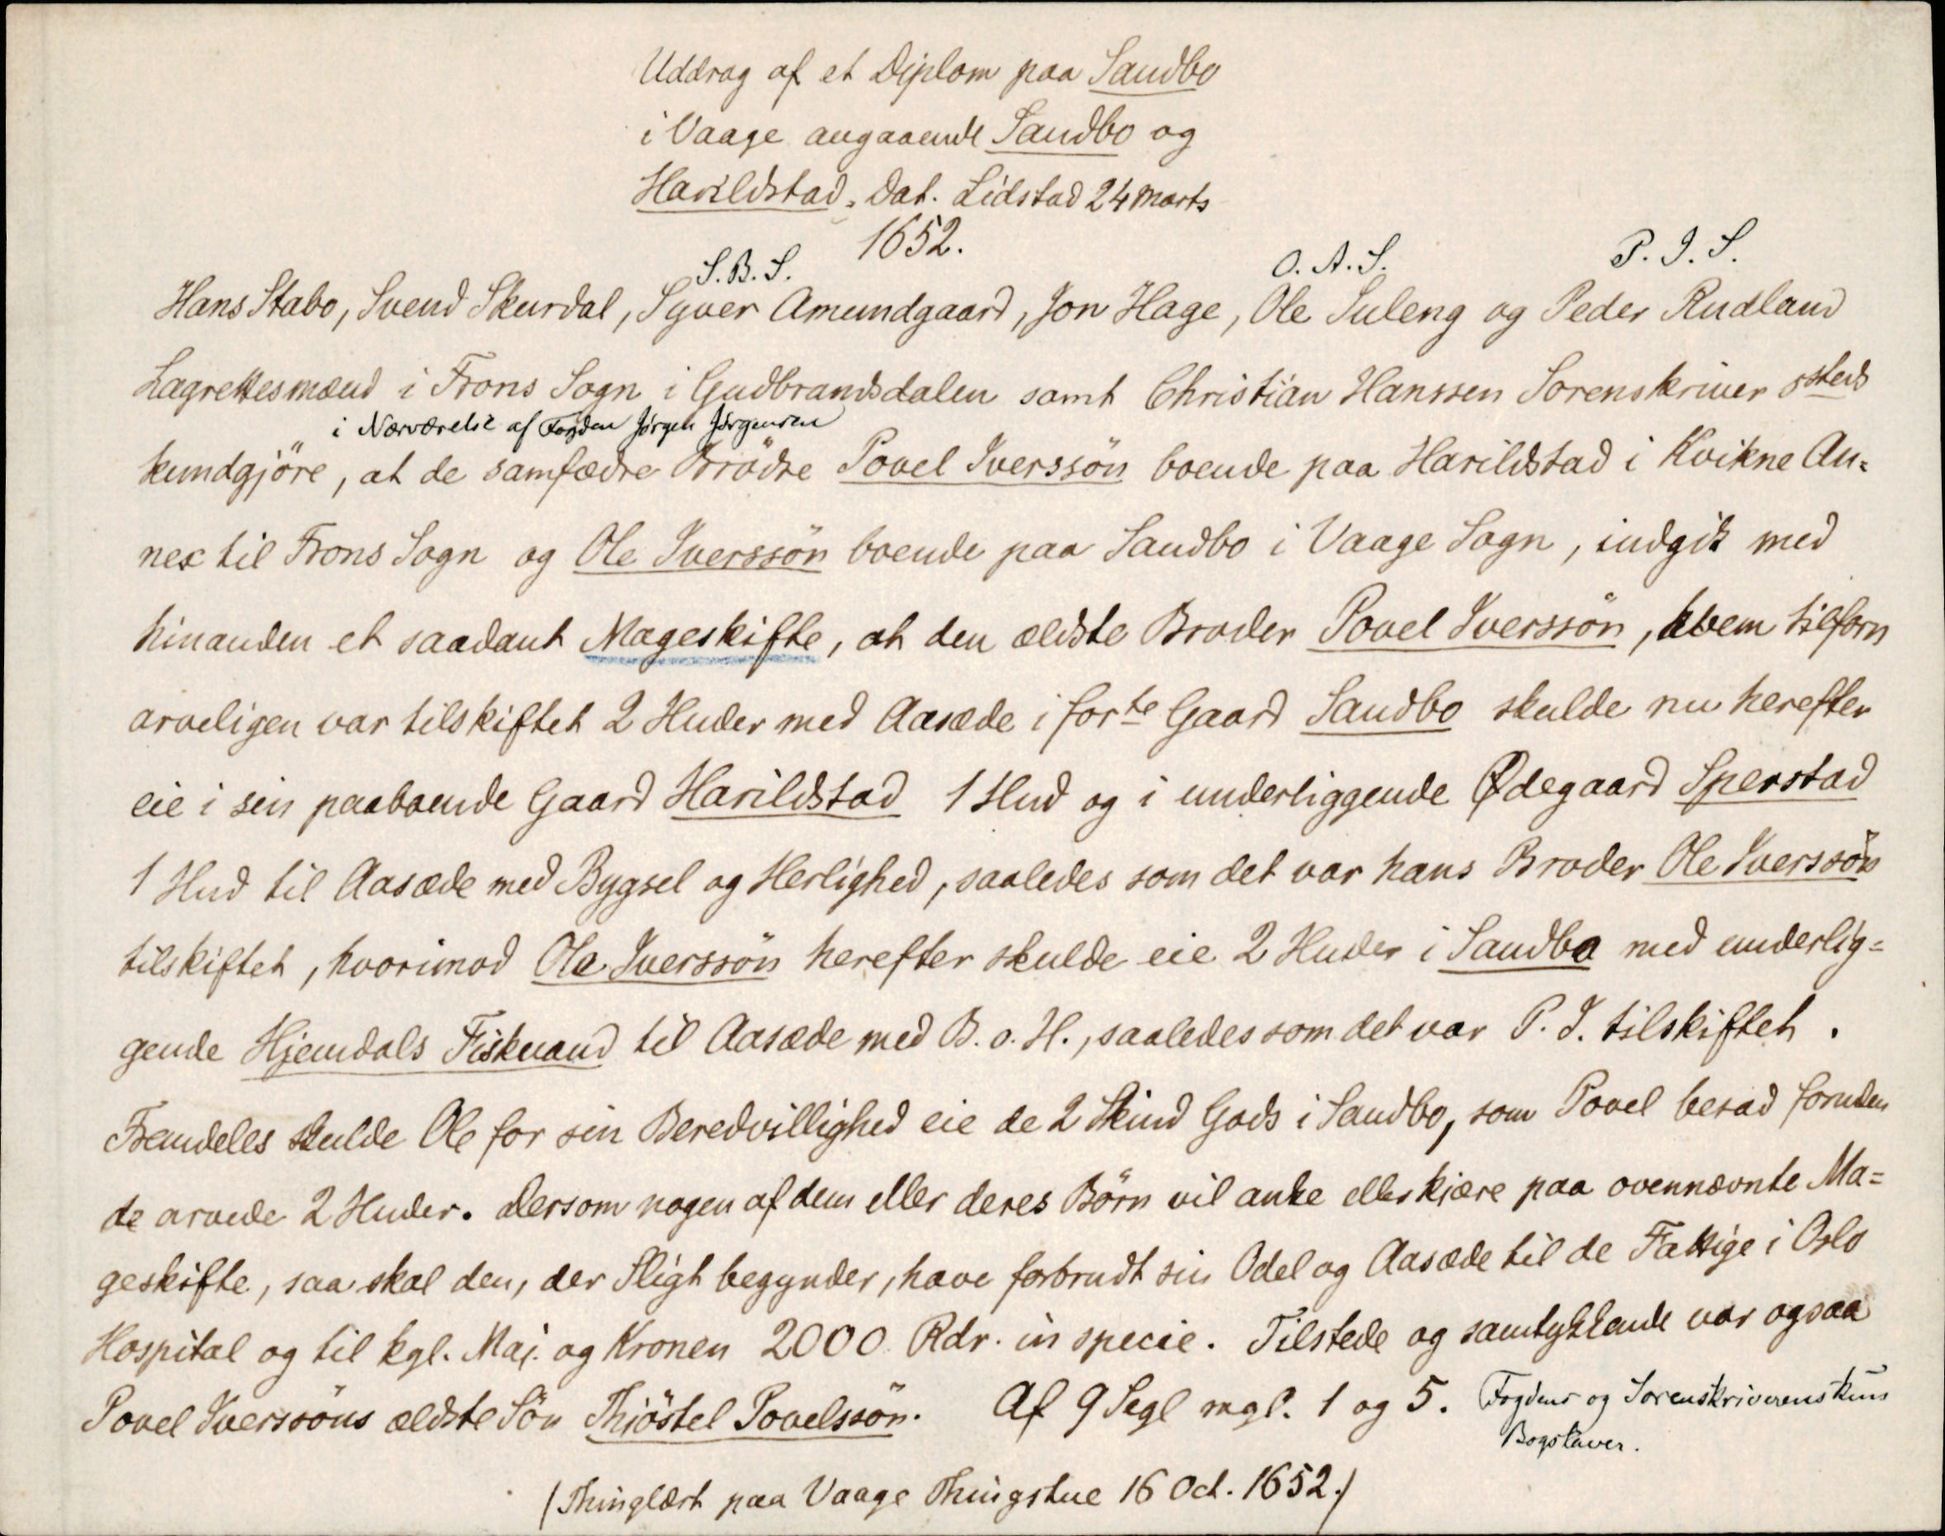 Uddrag af et Diplom paa Sandbo
i Vaage angaaende Sandbo og
Harildstad. Dat. Lidstad 24 Marts
1652.
S.B.S. O.A.S. P.I.S.
Hans Stabo, Svend Skurdal, Syver Amundgaard, Jon Hage, Ole Suleng og Peder Rudland
Lagrettesmænd i Frons Sogn i Gudbrandsdalen samt Christian Hanssen Sorenskriver ssteds
i Nærværelse af Fogden Jørgen Jørgensen
kundgjöre, at de samfædre Brödre Povel Iverssön boende paa Harildstad i Kvikne An=
nex til Frons Sogn og Ole Iverssön boende paa Sandbo i Vaage Sogn, indgik med
hinanden et saadant Mageskifte, at den ældste Broder Povel Iverssön, hvem tilforn
arveligen var tilskiftet 2 Huder med Aasæde i forte Gaard Sandbo skulde nu herefter
eie i sin paaboende Gaard Harildstad 1 Hud og i underliggende Ødegaard Sperstad
1 Hud til Aasæde med Bygsel og Herlighed, saaledes som det var hans Broder Ole Iverssön
tilskiftet, hvorimod Ole Iverssön herefter skulde eie 2 Huder i Sandbo med underlig=
gende Hjemdals Fiskvand til Aasæde med B. o. H., saaledes som det var P. I. tilskiftet.
Fremdeles skulde Ole for sin Beredvillighed eie de 2 Skind Gods i Sandbo, som Povel besad foruden
de arvede 2 Huder. Dersom nogen af dem eller deres Börn vil anke eller kjære paa ovennævnte Ma=
geskifte, saa skal den, der Sligt begynder, have forbrudt sin Odel og Aasæde til de Fattige i Oslo
Hospital og til kgl. Maj. og Kronen 2000 Rdr. in specie. Tilstede og samtykkende var ogsaa
Povel Iverssöns ældste Sön Thjöstel Povelssön. Af 9 Segl mgl. 1 og 5. Fogdens og Sorenskriverens kun
Bogstaver.
(Thinglæst paa Vaage Thingstue 16 Oct. 1652.)